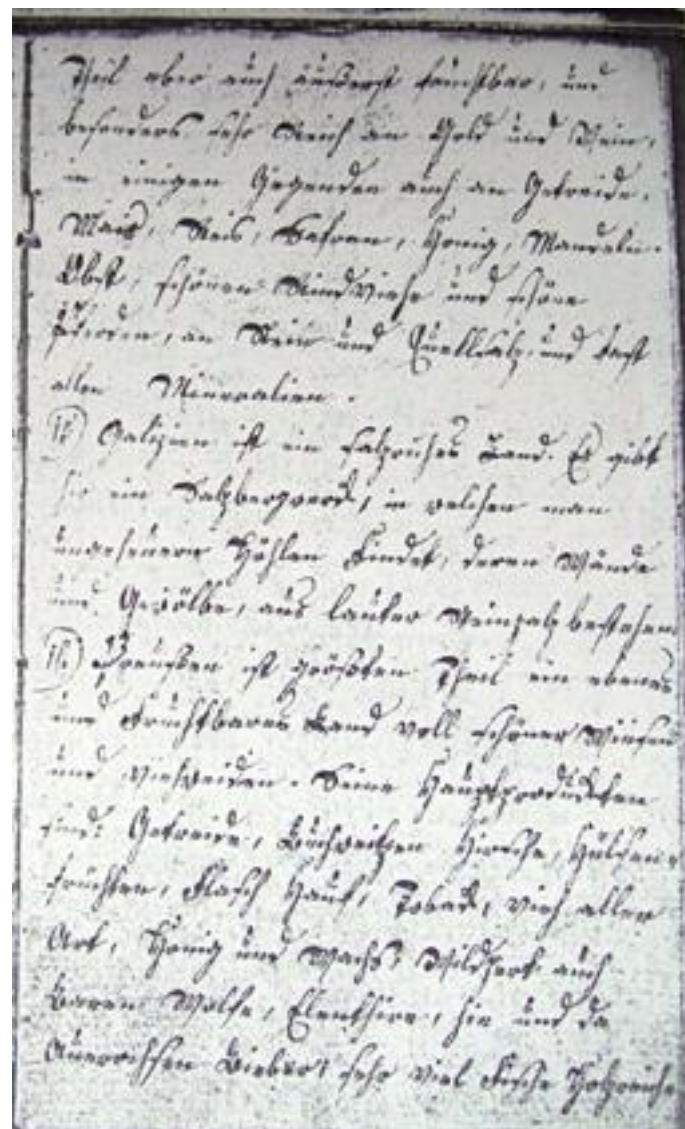 Theil aber auch äußerst fruchtbar, und
besonders sehr Reich an Gold und Wein,
in einigen Gegenden auch an Getreide,
Mais, Reis, Safran, Honig, Mandeln.
Obst, schönen Rindviehe und schöne
Pferden, an Stein und Quellsalz, und fast
allen Mineralien.
Galizien ist ein salzreiches Land. Es gibt
hie ein Salzbergwerk, in welchen man
ungeheuern Höhlen findet, deren Wände
und Gewölbe, aus lauter Steinsalz bestehem
Preußen ist größten Theil ein ebenes
und fruchtbares Land voll schöner Wiesen
und Viehweiden. Seine Hauptprodukten
sind: Getreide, Buchweitzen Hirsche, Hülsen-
früchten, Flasch Hanf, Toback, Vieh aller
Art, Honig und Wachs, auch
Baren Wolfe, Elenthire, hie und da
Auerochsen Bieber, sehr viel Fische